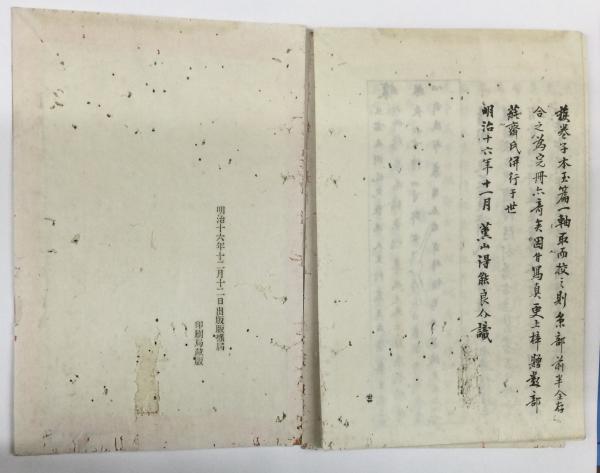 獲巻子本玉篇一軸取而挍之則糸部前半全存
合之為完冊亦奇矣因甘寫真更上梓贈數部
蒓齋氏併行于世
明治十六年十一月 薫山得能良介識
明治十六年十二月十二日出版版權届
印刷局蔵版